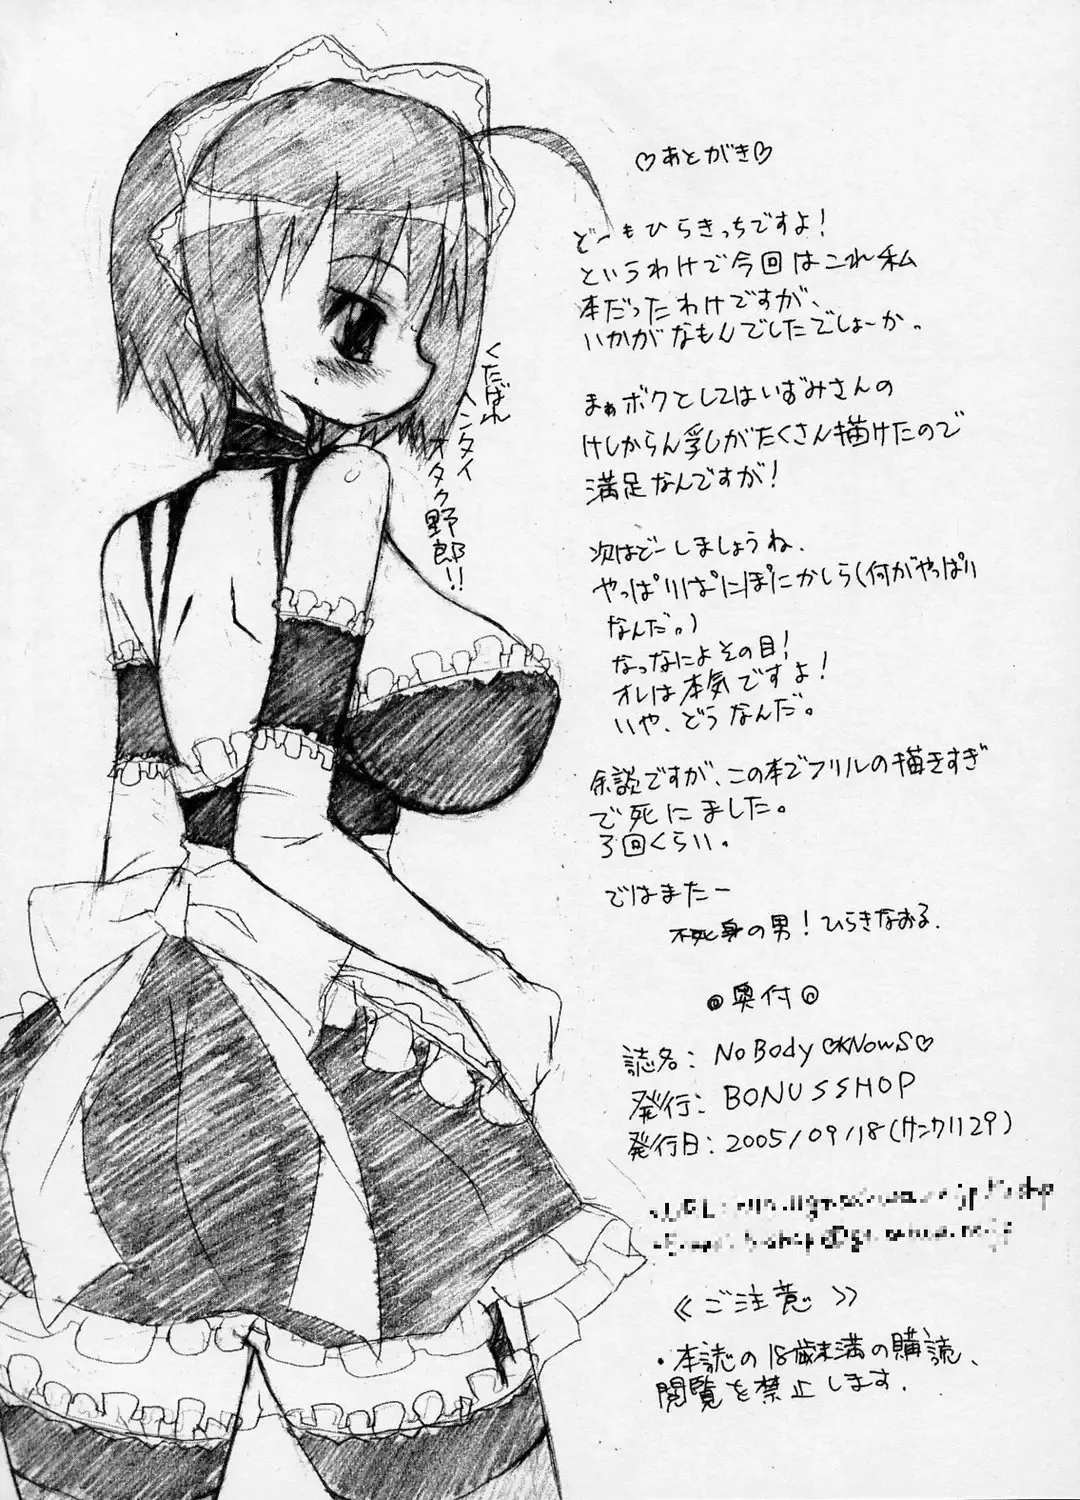 ♡あとがき♡
どーもひらきっちですよ！
というわけで今回はこれ私
本だったわけですが、
いかがなもんでしたでしょーか。
まぁボクとしてはいずみさんの
けしからん乳しがたくさん描けたので
満足なんですが！
次はどーしましょうね、
やっぱりぱにぽにかしら(何がやっぱり
なんだ。)
なっなによその目！
オレは本気ですよ！
いや、どうなんだ。
余談ですが、この本でフリルの描きすぎ
で死にました。
3回くらい。
ではまたー
不死身の男！ひらきなおる.
くたばれ
ヘンタイ
オタク野郎!!
◎奥付◎
誌名：NoBody♡KNowS♡
発行：BONUSSHOP
発行日：2005/09/18(サンクリ29)
《ご注意》
・本誌の18歳未満の購読、
閲覧を禁止します.